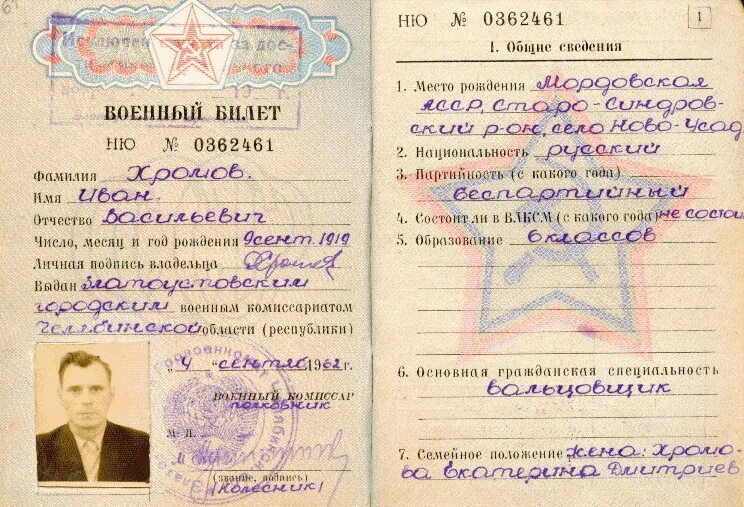 Исключен с учета за дос-
ВОЕННЫЙ БИЛЕТ
НЮ № 0362461
Фамилия Хромов.
Имя Иван.
Отчество Васильевич
Число, месяц и год рождения 9 сент. 1919
Личная подпись владельца
Выдан Златоустовским
городским военным комиссариатом
Челябинской области (республики)
„4 сентяб 1962 г.
ВОЕННЫЙ КОМИССАР
полковник
М. П.
(звание, подпись)
(Колесник)
НЮ № 0362461
1
I. Общие сведения
1. Место рождения Мордовская
АССР, Старо-Синдров-
ский р-он, село Ново-Усад
2. Национальность русский
3. Партийность (с какого года)
беспартийный
4. Состоит ли в ВЛКСМ (с какого года) не состои
5. Образование 6 классов
6. Основная гражданская специальность
вальцовщик
7. Семейное положение жена: Хромо-
ва Екатерина Дмитриев